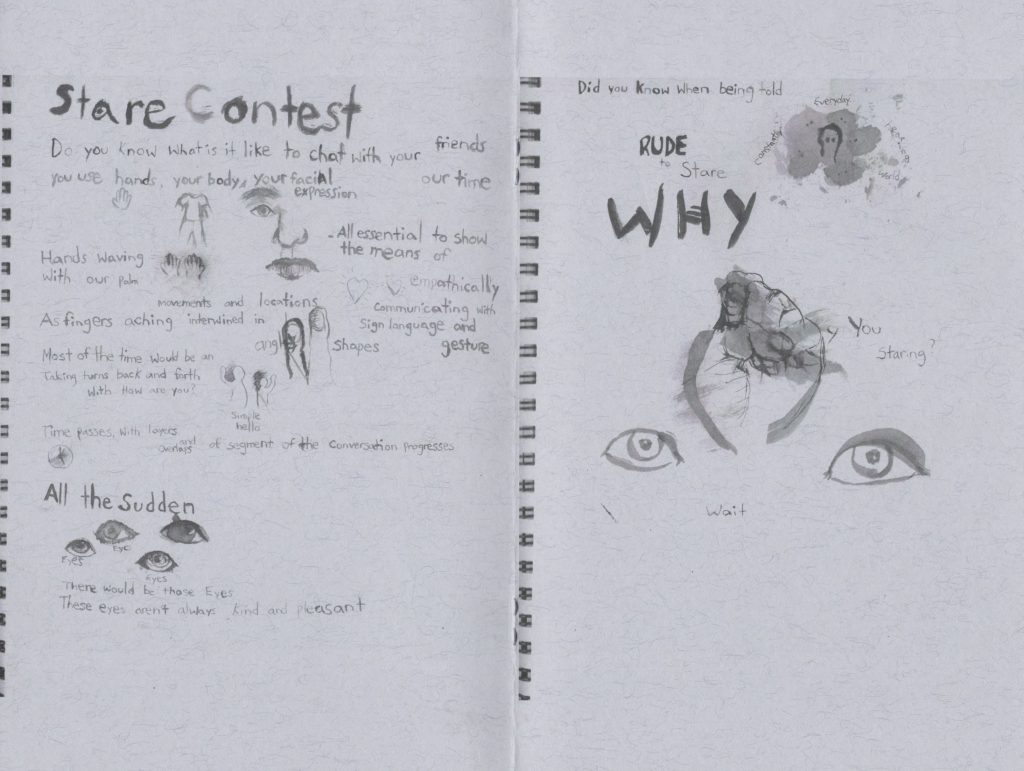 Stare Contest
Do you know what is it like to chat with your friends
you use hands, your body, your facial expression
our time
- All essential to show
the means of
Hands Waving
With our palm
empathically
communicating with
Sign language and
gesture
movements and locations
As fingers aching interwined in
angle shapes
Most of the time would be an
Taking turns back and forth,
With How are you?
Simple
hello
Time passes, with layers
and overlaps of segment of the conversation progresses
All the sudden
Eyes
Eye
Eyes
There would be those Eyes
These eyes aren't always kind and pleasant
Did you know when being told
Everyday
Constantly
world
RUDE
to Stare
WHY
y You
Staring?
Wait